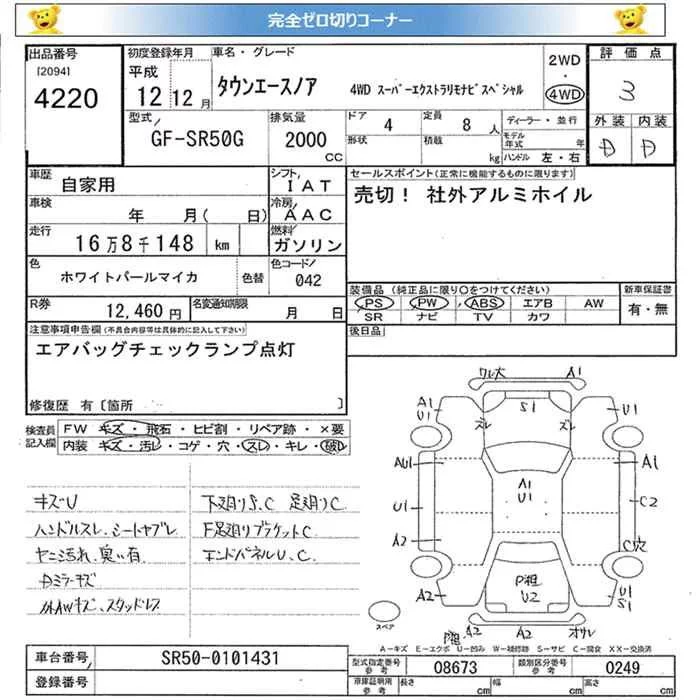 完全ゼロ切りコーナー
出品番号
[2094]
4220
初度登録年月
平成
12 12 月
車名・グレード
タウンエースノア 4WD スーパーエクストラリモナビスペシャル
2WD
・
4WD
評価点
3
外装 内装
D D
型式
GF-SR50G
排気量
2000
CC
ドア 4
形状
定員 8 人
積載 kg
ディーラー・並行
モデル年式 年
ハンドル 左・右
車歴 自家用
シフト IAT
車検 年 月( 日)
冷房 AAC
走行 16万8千148 km
燃料 ガソリン
色 ホワイトパールマイカ 色替
色コード 042
R券 12,460円
名変通知期限 月 日
セールスポイント(正常に機能するものに限ります)
売切! 社外アルミホイル
装備品(純正品に限り○をつけてください)
PS PW ABS エアB AW
SR ナビ TV カワ
新車保証書
有・無
後日品
注意事項申告欄(不具合内容等は具体的に記入して下さい)
エアバッグチェックランプ点灯
修復歴 有〔箇所 〕
検査員記入欄
FW キズ・飛石・ヒビ割・リペア跡・×要
内装 キズ・汚レ・コゲ・穴・スレ・キレ・破レ
キズU
ハンドルスレ、シートヤブレ
ヤニ汚れ、臭い有
Dミラーキズ
外AWキズ、スタッドレス
下廻りS.C 足廻りC
F足廻りブラケットC
エンドパネルU、C
ワレ大 A1
A1
U1
ズレ S1 ズレ
U1
AU1
A1
U1
A1
U1
C2
A2
C穴
P粗
U2
A2
U1
S1
スペア
A2 A2 オサレ
A-キズ E-エクボ U-凹み W-補修跡 S-サビ C-腐食 XX-交換済
車台番号 SR50-0101431
登録番号
型式指定番号
参考
08673
類別区分番号
参考
0249
車庫証明用
参考
長さ cm 幅 cm 高さ cm